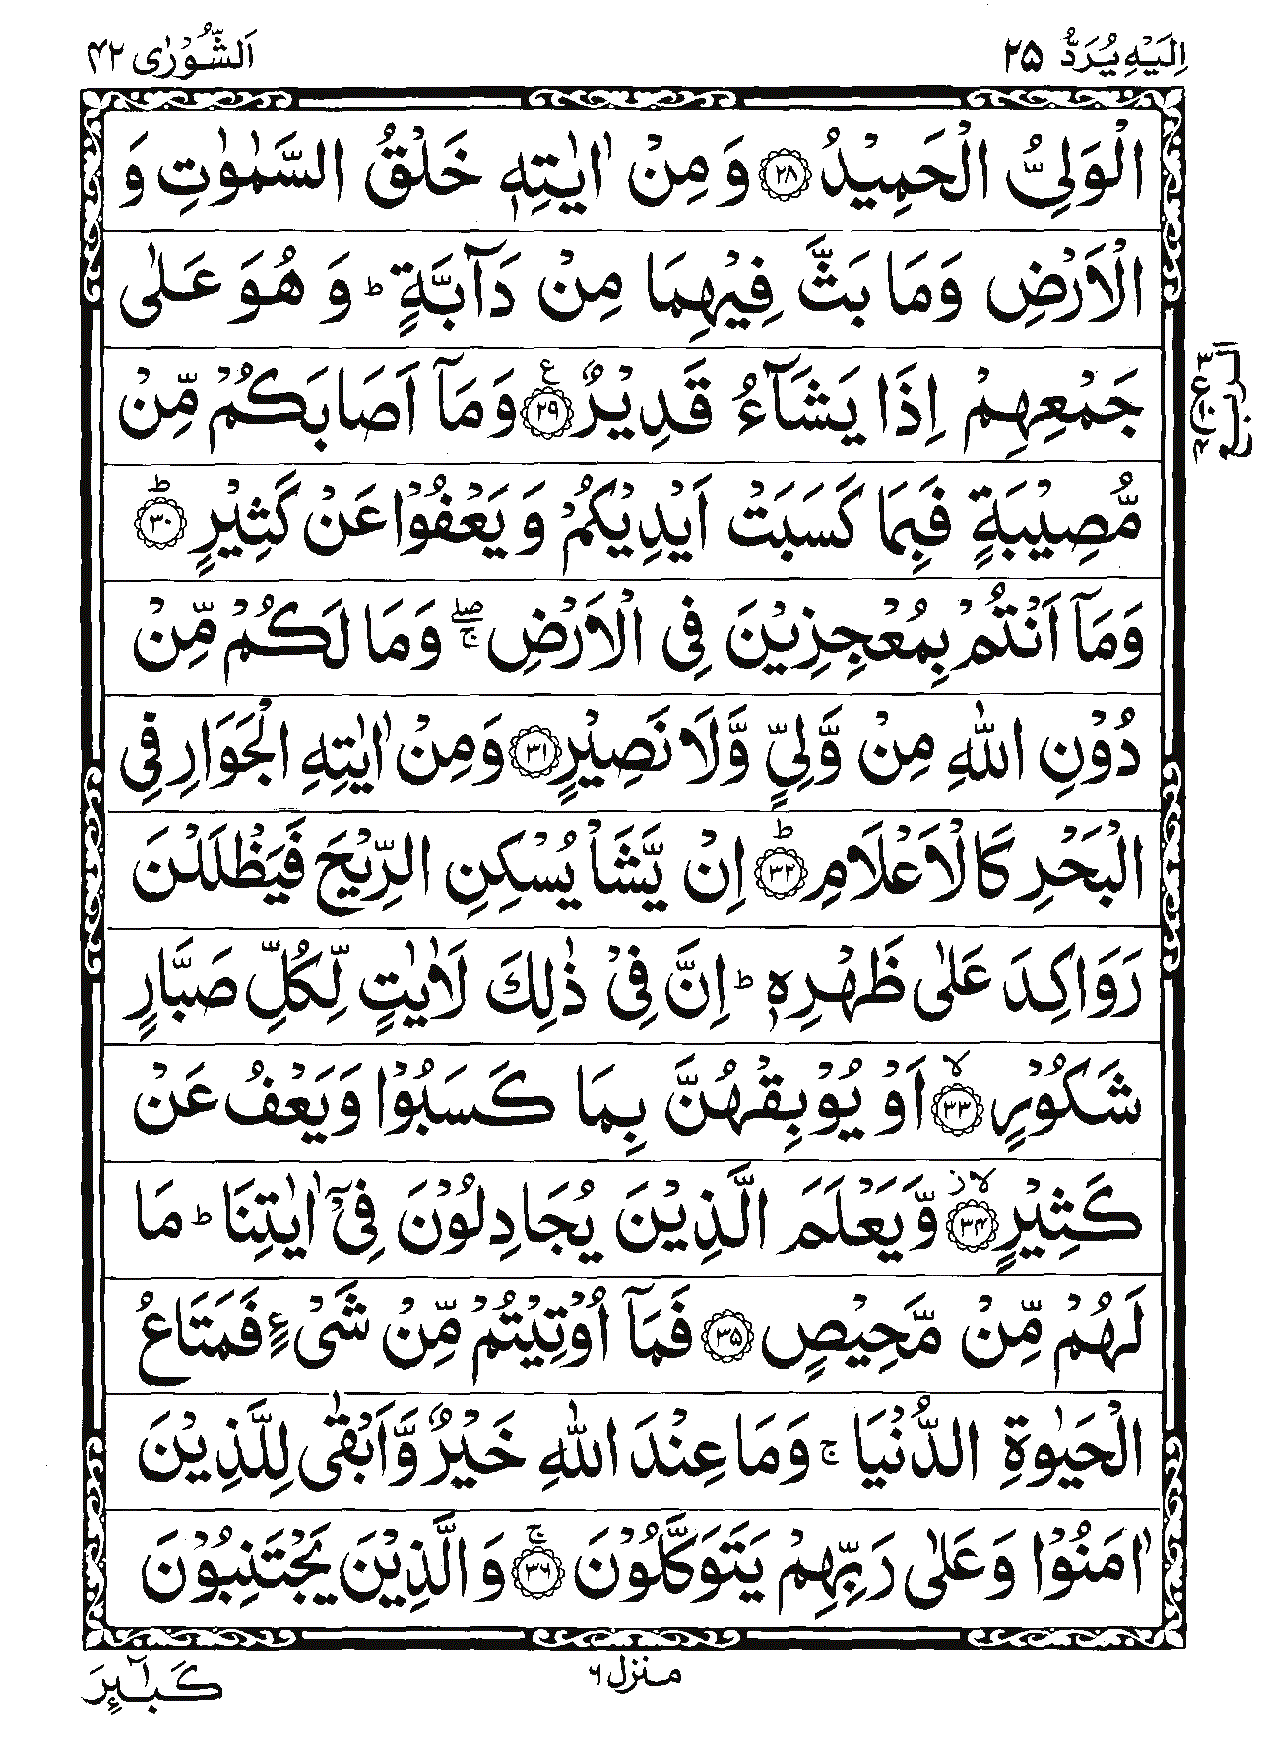 اِلَیْهِ یُرَدُّ ۲۵
اَلشُّوْرٰی ۴۲
الْوَلِیُّ الْحَمِیْدُ ﴿۲۸﴾ وَ مِنْ اٰیٰتِهٖ خَلْقُ السَّمٰوٰتِ وَ
الْاَرْضِ وَمَا بَثَّ فِیْهِمَا مِنْ دَآبَّةٍ ؕ وَ هُوَ عَلٰی
جَمْعِهِمْ اِذَا یَشَآءُ قَدِیْرٌ ﴿۲۹﴾ ع وَ مَاۤ اَصَابَكُمْ مِّنْ
مُّصِیْبَةٍ فَبِمَا كَسَبَتْ اَیْدِیْكُمْ وَ یَعْفُوْا عَنْ كَثِیْرٍ ﴿۳۰﴾ؕ
وَمَاۤ اَنْتُمْ بِمُعْجِزِیْنَ فِی الْاَرْضِ ۚۖ وَمَا لَكُمْ مِّنْ
دُوْنِ اللّٰهِ مِنْ وَّلِیٍّ وَّلَا نَصِیْرٍ ﴿۳۱﴾ وَمِنْ اٰیٰتِهِ الْجَوَارِ فِی
الْبَحْرِ كَالْاَعْلَامِ ﴿۳۲﴾ؕ اِنْ یَّشَاْ یُسْكِنِ الرِّیْحَ فَیَظْلَلْنَ
رَوَاكِدَ عَلٰی ظَهْرِهٖ ؕ اِنَّ فِیْ ذٰلِكَ لَاٰیٰتٍ لِّكُلِّ صَبَّارٍ
شَكُوْرٍ ﴿۳۳﴾ۙ اَوْ یُوْبِقْهُنَّ بِمَا كَسَبُوْا وَیَعْفُ عَنْ
كَثِیْرٍ ﴿۳۴﴾ۙ ز وَّیَعْلَمَ الَّذِیْنَ یُجَادِلُوْنَ فِیْۤ اٰیٰتِنَا ؕ مَا
لَهُمْ مِّنْ مَّحِیْصٍ ﴿۳۵﴾ فَمَاۤ اُوْتِیْتُمْ مِّنْ شَیْءٍ فَمَتَاعُ
الْحَیٰوةِ الدُّنْیَا ۚ وَمَا عِنْدَ اللّٰهِ خَیْرٌ وَّاَبْقٰی لِلَّذِیْنَ
اٰمَنُوْا وَعَلٰی رَبِّهِمْ یَتَوَكَّلُوْنَ ﴿۳۶﴾ۚ وَالَّذِیْنَ یَجْتَنِبُوْنَ
الربع
منزل ۶
كَبٰٓىِٕرَ